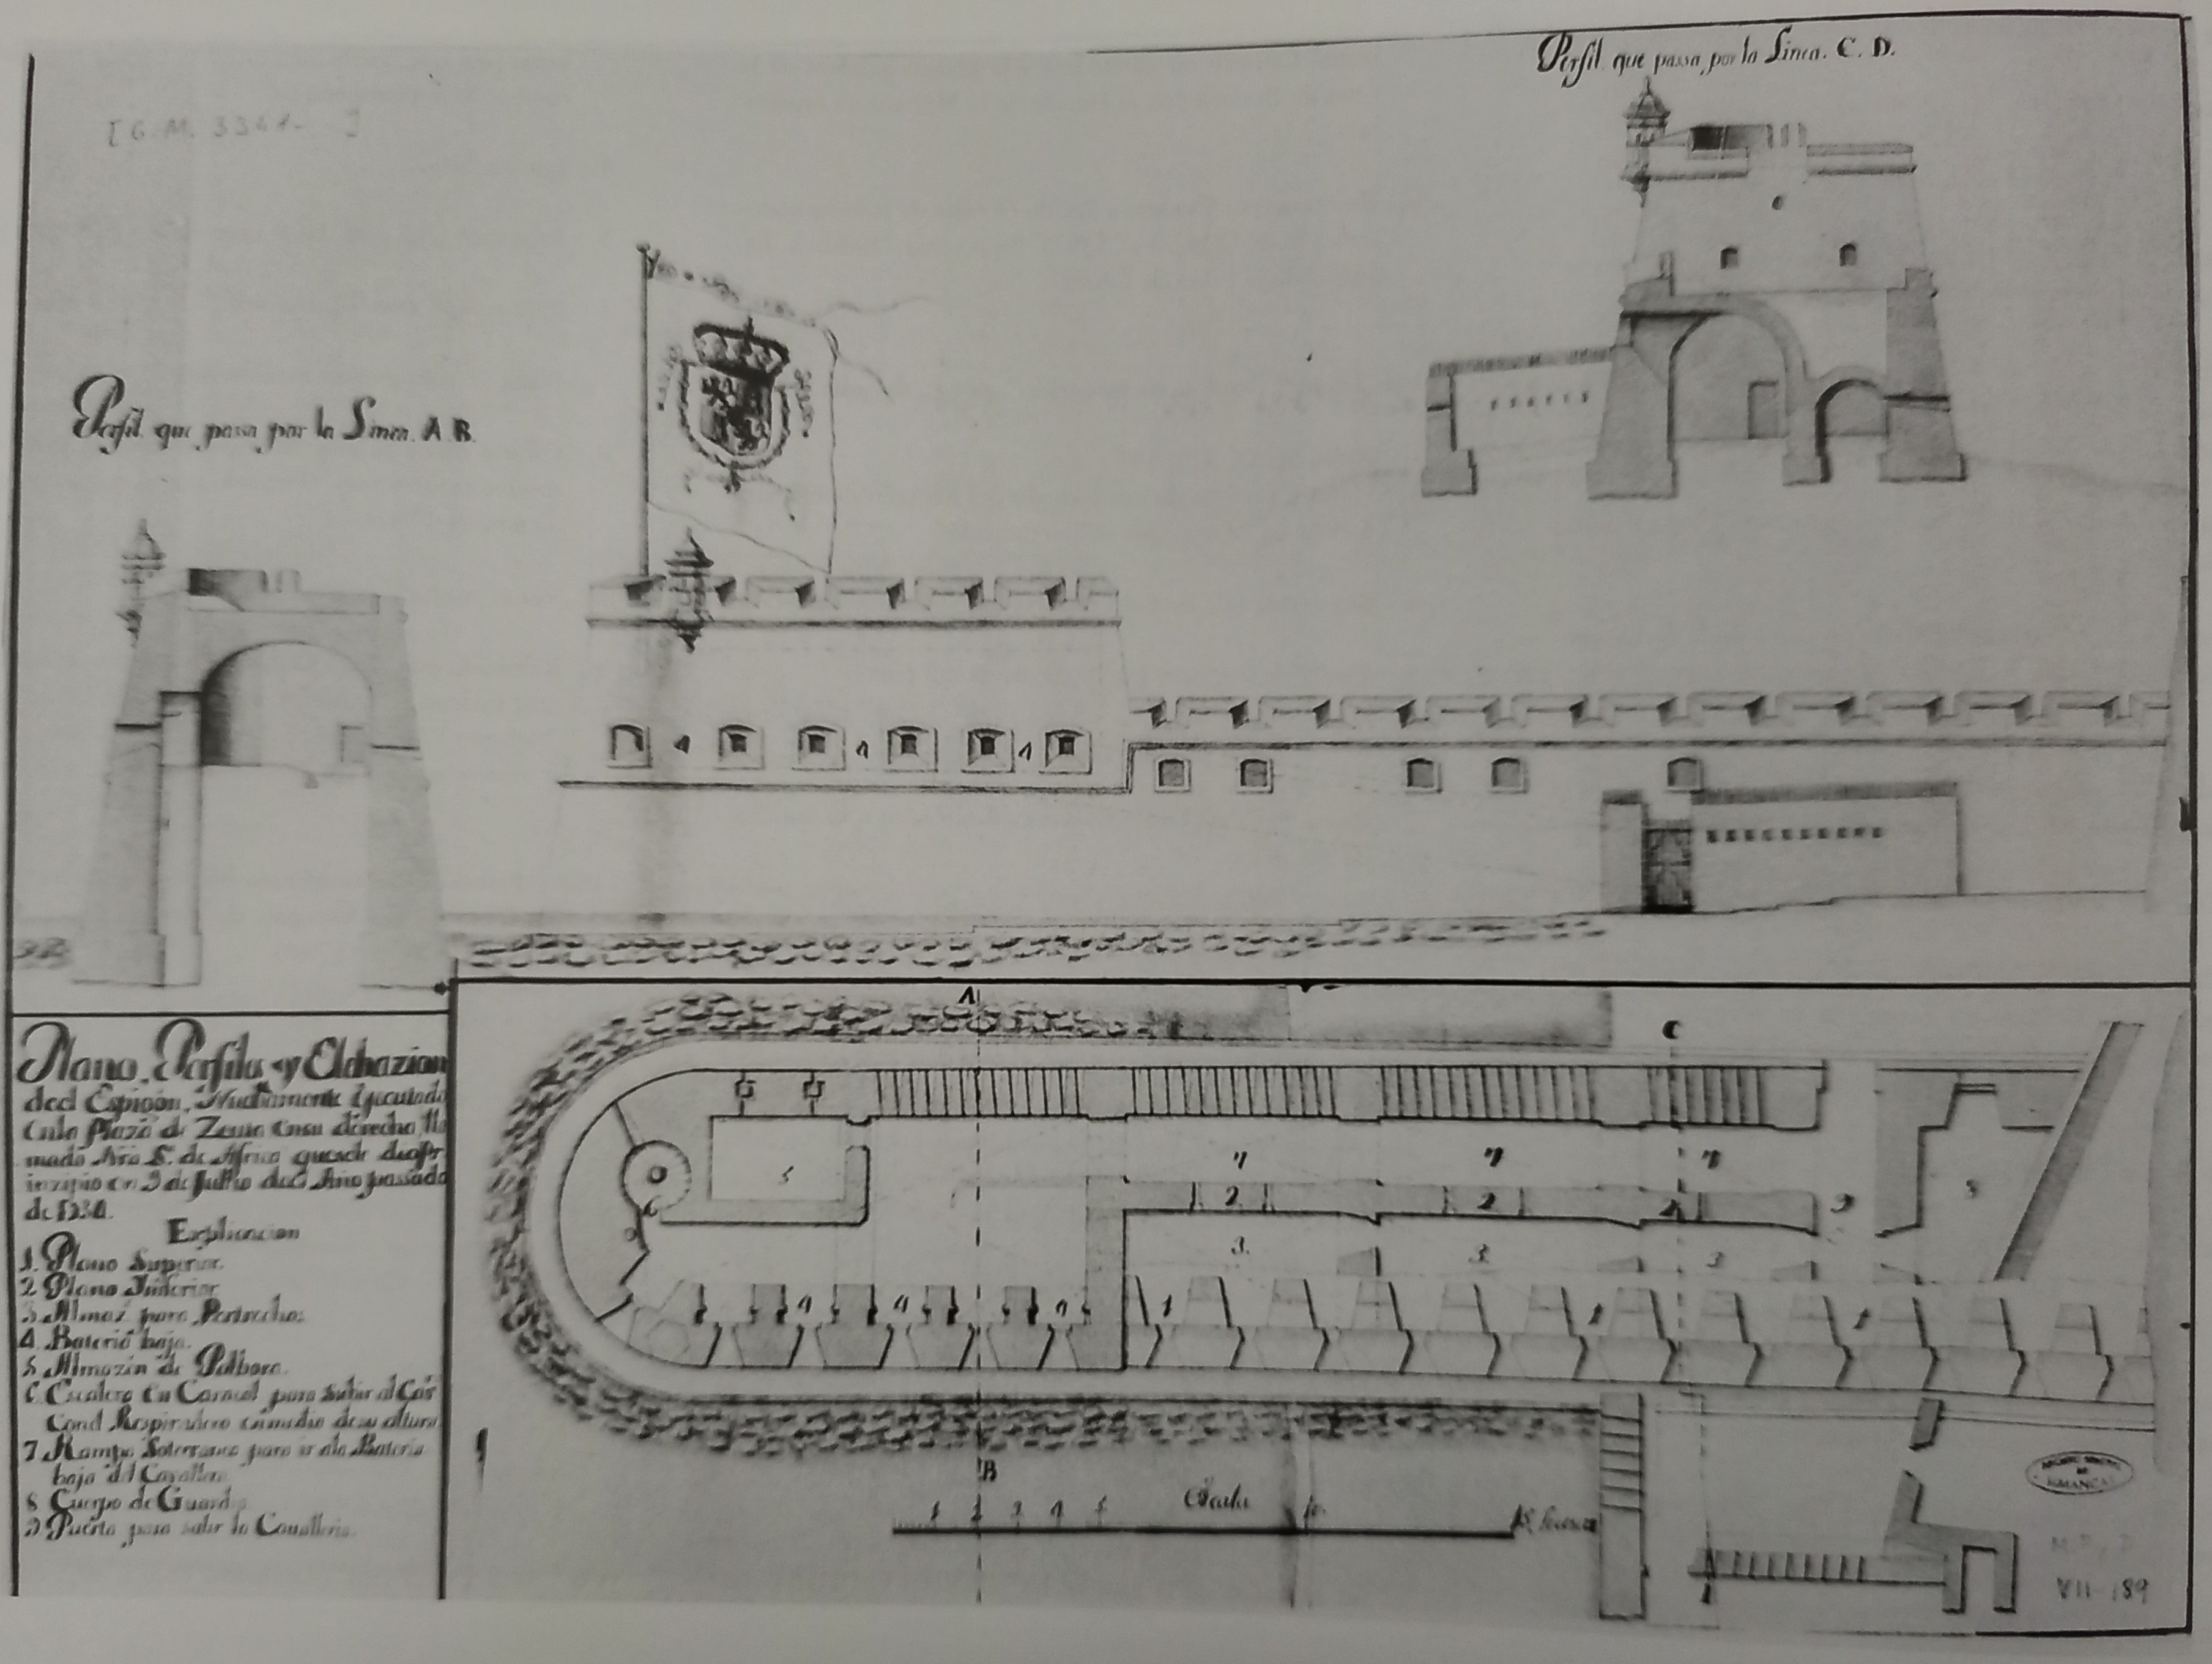 Perfil que passa por la Linea. C. D.
[G. M. 3341- ]
Perfil que passa por la Linea. A. B.
Plano, Perfiles y Elebazion
del Espigon, Nuebamente Executado
en la Plaza de Zeuta en su derecha lla
mado Nra S. de Africa que se le dio Pr
inzipio en 9 de Julio del Año passado
de
Explicacion
1. Plano Superior.
2 Plano Inferior
3 Almaz. para Pertrechos
4 Bateria baja.
5 Almazen de Polbora.
6 Escalera en Caracol para subir al
Con el Respiradero en medio de su altura
7 Rampa Soterranea para ir a la Bateria
baja del Cavallero
8 Cuerpo de Guardia
9 Puerta para salir la Cavalleria.
A
C
B
Escala
ARCHIVO GENERAL
DE
SIMANCAS
M. P. y D
VII-189